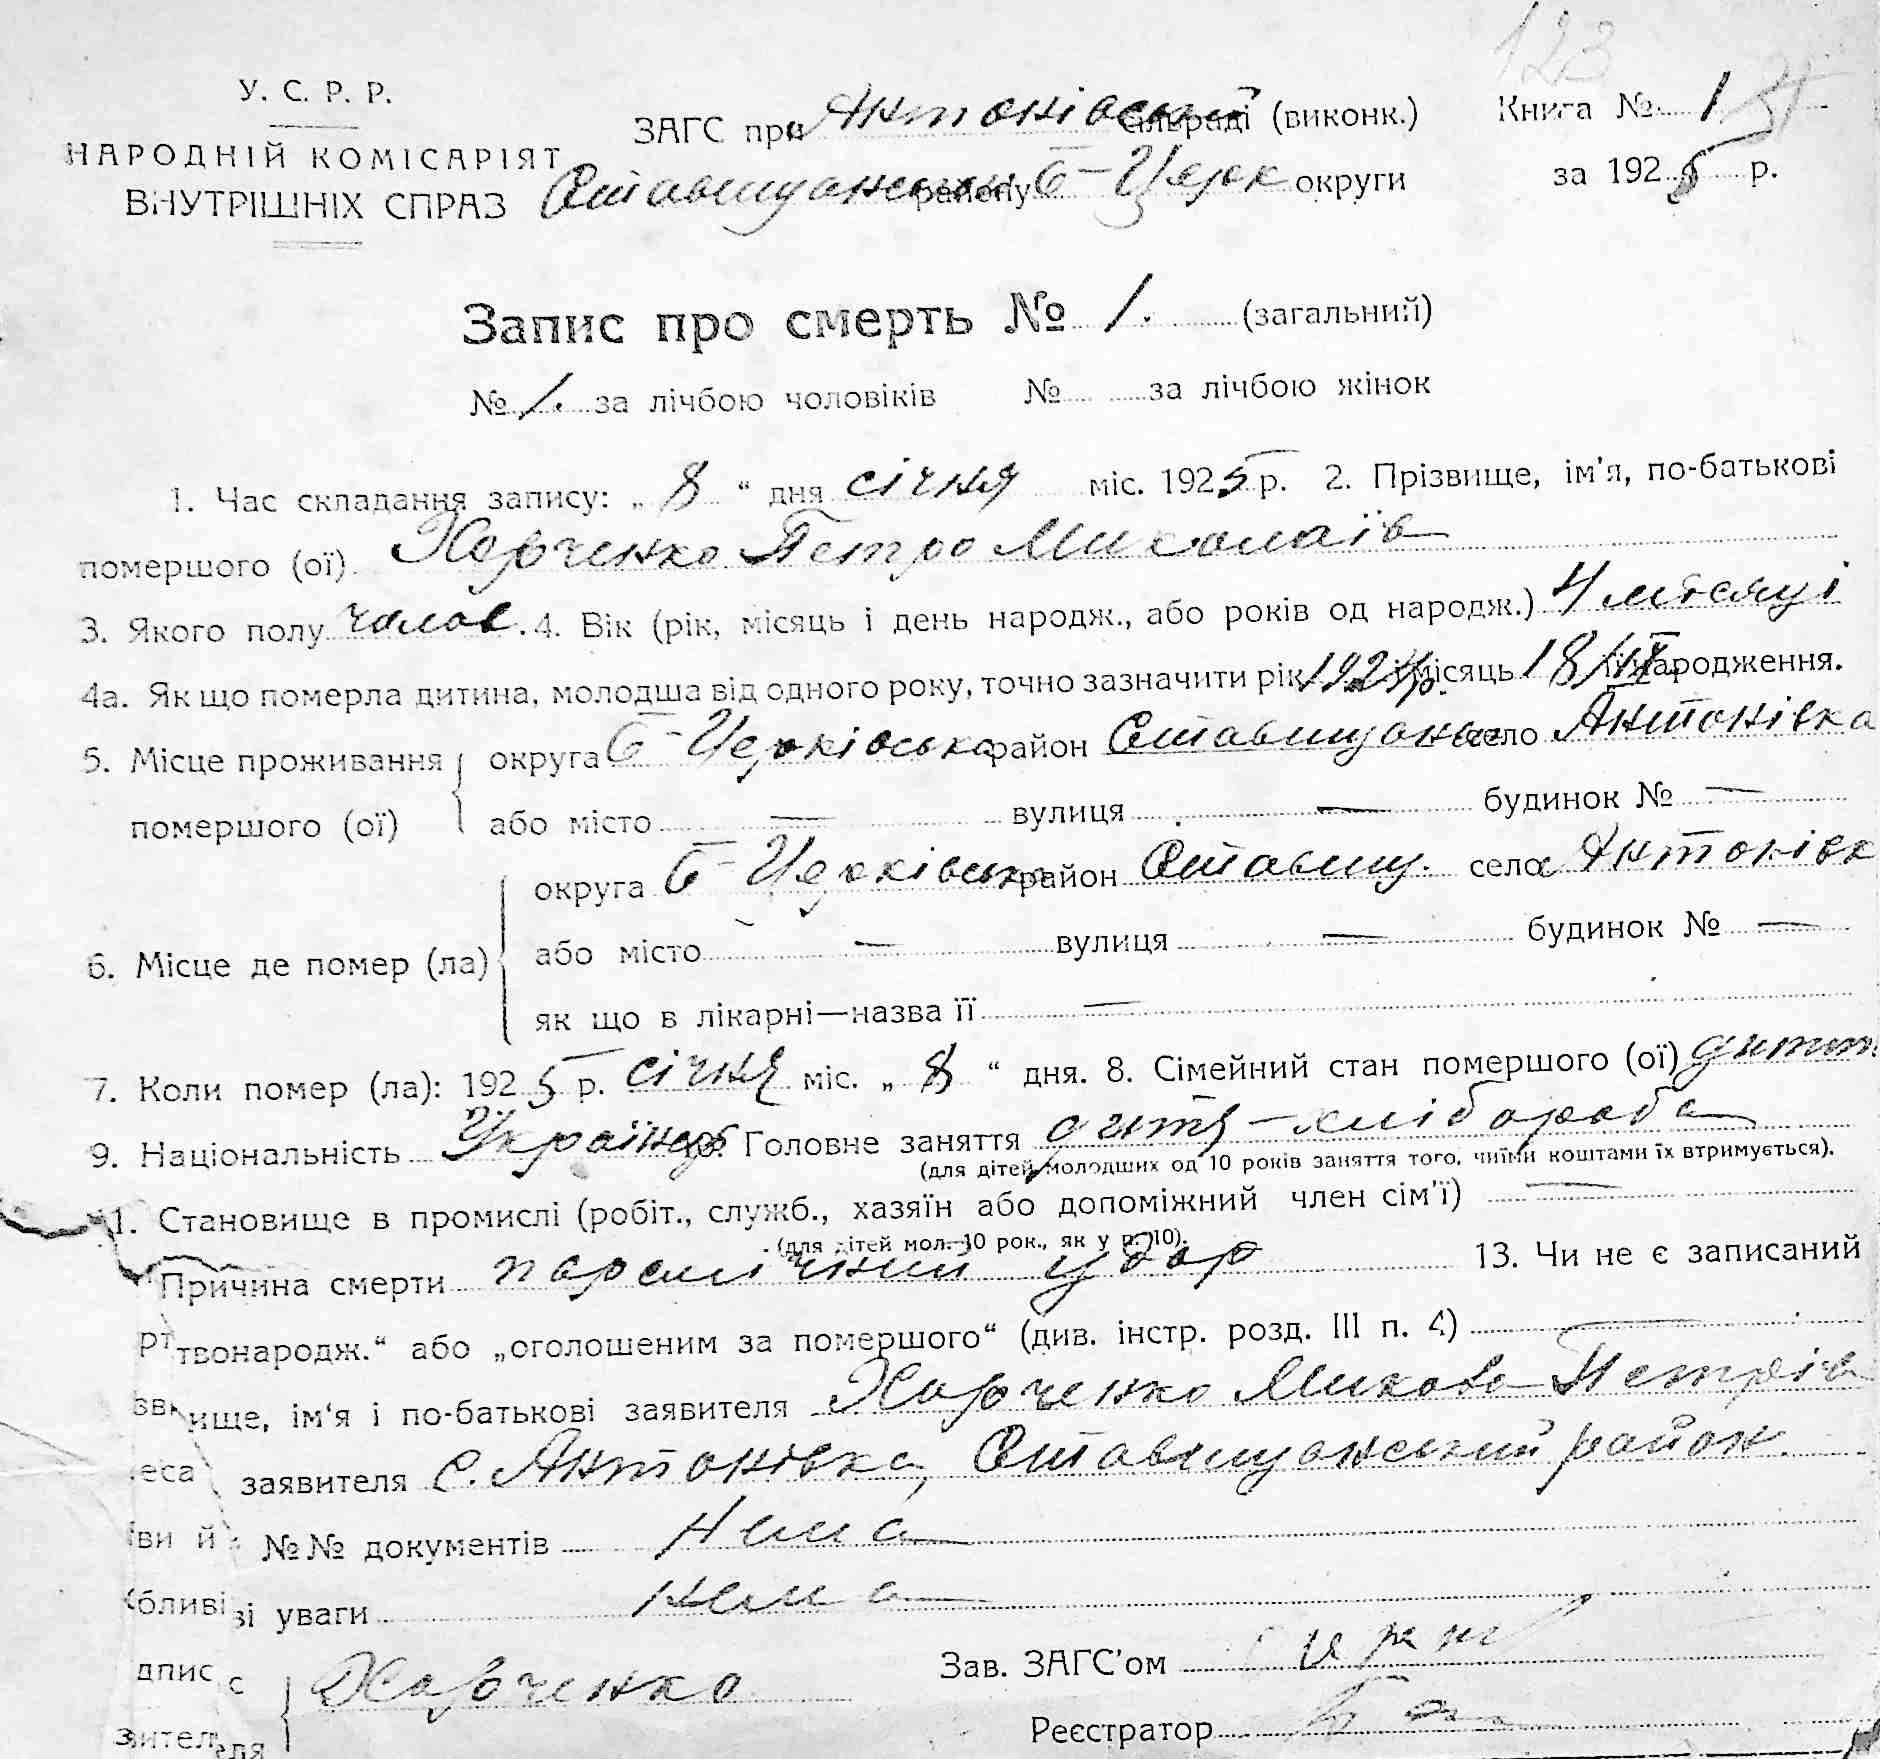 123
У. С. Р. Р.
НАРОДНІЙ КОМІСАРІЯТ
ВНУТРІШНІХ СПРАВ
ЗАГС при Антонівській сільраді (виконк.)
Ставищанськ району Б-Церк округи
Книга № 1
за 1925 р.
Запис про смерть № 1. (загальний)
№ 1. за лічбою чоловіків № за лічбою жінок
1. Час складання запису: „ 8 “ дня січня міс. 1925 р. 2. Прізвище, ім'я, по-батькові
помершого (ої) Харченко Петро Миколаїв
3. Якого полу чолов. 4. Вік (рік, місяць і день народж., або років од народж.) 4 місяці
4а. Як що померла дитина, молодша від одного року, точно зазначити рік 1924 р. місяць 18/ІХ народження.
5. Місце проживання помершого (ої) округа Б-Церківська район Ставищанськ село Антонівка
або місто — вулиця — будинок № —
6. Місце де помер (ла) округа Б-Церківська район Ставищ. село Антонівк
або місто — вулиця — будинок № —
як що в лікарні—назва її —
7. Коли помер (ла): 1925 р. січня міс. „ 8 “ дня. 8. Сімейний стан помершого (ої) дитин
9. Національність Українець Головне заняття дитя - хлібороба
(для дітей, молодших од 10 років заняття того, чиїми коштами їх втримується).
1. Становище в промислі (робіт., служб., хазяїн або допоміжний член сім'ї) —
(для дітей мол. 10 рок., як у р. 10).
Причина смерти паралічний удар 13. Чи не є записаний
твонародж.“ або „оголошеним за помершого“ (див. інстр. розд. III п. 4) —
ище, ім'я і по-батькові заявителя Харченко Микола Петрів
еса заявителя с. Антонівка, Ставищанський район.
ви й №№ документів Нема
бливі зі уваги нема
дпис Харченко Зав. ЗАГС'ом
Реєстратор